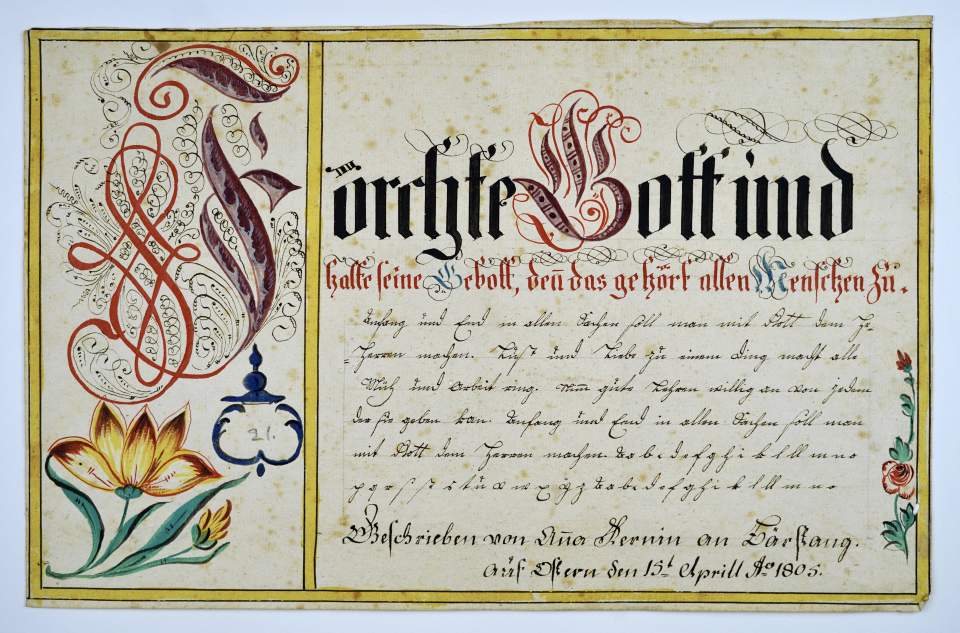 Förchte Gott und
halte seine Gebott, deñ das gehört allen Menschen zu.
Anfang und End in allen Sachen soll man mit Gott dem He-
=Herren machen. Lust und Liebe zu einem Ding macht alle
Müh und Arbeit ring. Nim̃ gute Lehren willig an von jedem
der sie geben kan. Anfang und End in allen Sachen soll man
mit Gott dem Herren machen. a b c d e f g h i k l ll m n o
p q r s ß st t u v w x y z a b c d e f g h i k l ll m n o
Geschrieben von Aña
Auf Ostern den 15t Aprill Ao 1805.
21.